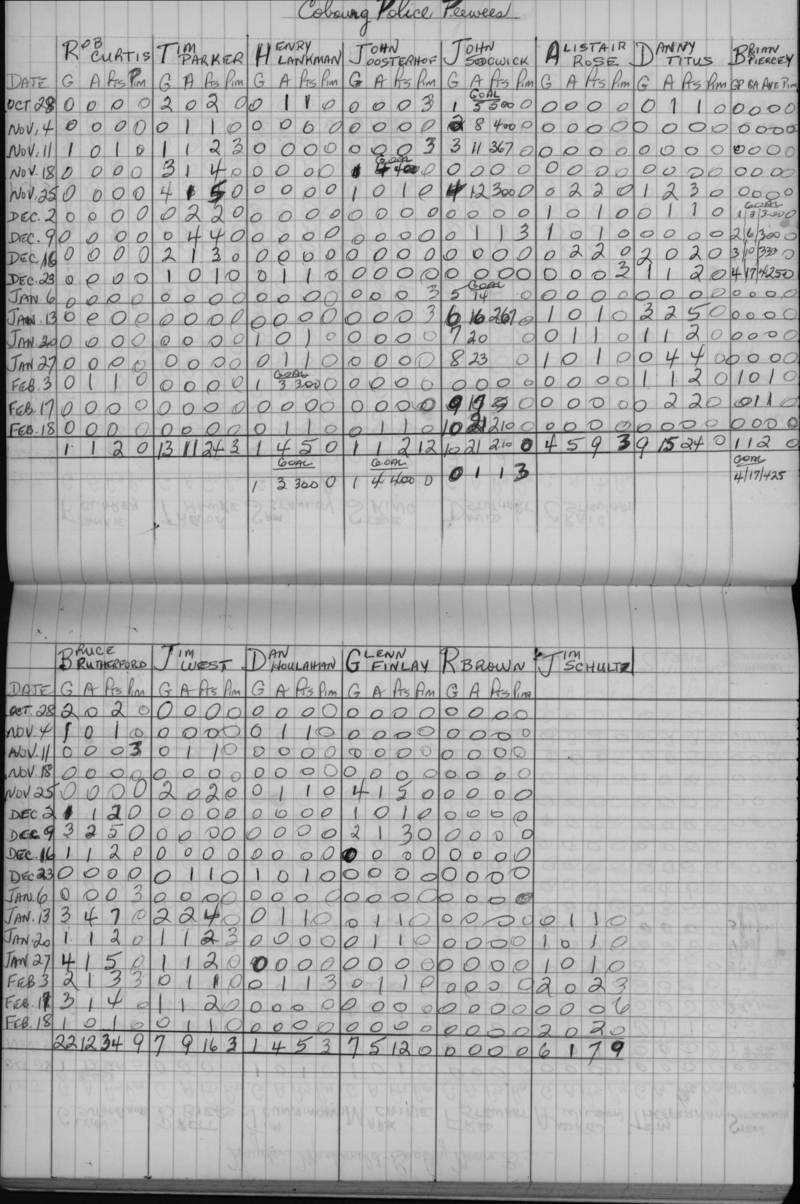 Cobourg Police Peewees
ROB CURTIS TIM PARKER HENRY LANKMAN JOHN OOSTERHOF JOHN SEDGWICK ALISTAIR ROSE DANNY TITUS BRIAN PIERCEY
DATE G A Pts Pim G A Pts Pim G A Pts Pim G A Pts Pim G A Pts Pim G A Pts Pim G A Pts Pim GP GA AVE Pim
OCT 28 0 0 0 0 2 0 2 0 0 1 1 0 0 0 0 3 GOAL 1 5 500 0 0 0 0 0 0 1 1 0 0 0 0 0
NOV. 4 0 0 0 0 0 1 1 0 0 0 0 0 0 0 0 0 2 8 400 0 0 0 0 0 0 0 0 0 0 0 0 0
NOV. 11 1 0 1 0 1 1 2 3 0 0 0 0 0 0 0 3 3 11 367 0 0 0 0 0 0 0 0 0 0 0 0
NOV. 18 0 0 0 0 3 1 4 0 0 0 0 0 GOAL 1 4 400 0 0 0 0 0 0 0 0 0 0 0 0 0 0 0 0
NOV. 25 0 0 0 0 4 1 5 0 0 0 0 0 1 0 1 0 4 12 300 0 0 2 2 0 1 2 3 0 0 0 0 0
DEC. 2 0 0 0 0 0 2 2 0 0 0 0 0 0 0 0 0 0 0 0 0 1 0 1 0 0 1 1 0 GOAL 1 3 300 0
DEC. 9 0 0 0 0 0 4 4 0 0 0 0 0 0 0 0 0 0 1 1 3 1 0 1 0 0 0 0 0 2 6 300 0
DEC. 16 0 0 0 0 2 1 3 0 0 0 0 0 0 0 0 0 0 0 0 0 0 2 2 0 2 0 2 0 3 10 333 0
DEC. 23 0 0 0 0 1 0 1 0 0 1 1 0 0 0 0 0 0 0 0 0 0 0 0 3 1 1 2 0 4 17 425 0
JAN. 6 0 0 0 0 0 0 0 0 0 0 0 0 0 0 0 3 GOAL 5 14 0 0 0 0 0 0 0 0 0 0 0 0
JAN. 13 0 0 0 0 0 0 0 0 0 0 0 0 0 0 0 3 6 16 267 0 1 0 1 0 3 2 5 0 0 0 0 0
JAN. 20 0 0 0 0 0 0 0 0 1 0 1 0 0 0 0 0 7 20 0 1 1 0 1 1 2 0 0 0 0
JAN 27 0 0 0 0 0 0 0 0 0 1 1 0 0 0 0 0 8 23 1 0 1 0 0 4 4 0 0 0 0 0
FEB. 3 0 1 1 0 0 0 0 0 GOAL 1 3 300 0 0 0 0 0 0 0 0 0 0 0 0 0 1 1 2 0 1 0 1 0
FEB. 17 0 0 0 0 0 0 0 0 0 0 0 0 0 0 0 0 9 0 0 0 0 0 2 2 0 0 1 1 0
FEB. 18 0 0 0 0 0 0 0 0 0 1 1 0 0 1 1 0 10 21 210 0 0 0 0 0 0 0 0 0 0 0 0 0
1 1 2 0 13 11 24 3 1 4 5 0 1 1 2 12 10 21 210 0 4 5 9 3 9 15 24 0 1 1 2 0
GOAL 1 3 300 0 GOAL 1 4 400 0 0 1 1 3 GOAL 4/17/425
BRUCE RUTHERFORD JIM WEST DAN HOULAHAN GLENN FINLAY R BROWN JIM SCHULTZ
DATE G A Pts Pim G A Pts Pim G A Pts Pim G A Pts Pim G A Pts Pim
OCT. 28 2 0 2 0 0 0 0 0 0 0 0 0 0 0 0 0 0 0 0 0
NOV. 4 1 0 1 0 0 0 0 0 0 1 1 0 0 0 0 0 0 0 0 0
NOV. 11 0 0 0 3 0 1 1 0 0 0 0 0 0 0 0 0 0 0 0 0
NOV. 18 0 0 0 0 0 0 0 0 0 0 0 0 0 0 0 0 0 0 0 0
NOV 25 0 0 0 0 2 0 2 0 0 1 1 0 4 1 5 0 0 0 0 0
DEC 2 1 1 2 0 0 0 0 0 0 0 0 0 1 0 1 0 0 0 0 0
DEC 9 3 2 5 0 0 0 0 0 0 0 0 0 2 1 3 0 0 0 0 0
DEC. 16 1 1 2 0 0 0 0 0 0 0 0 0 0 0 0 0 0 0 0 0
DEC 23 0 0 0 0 0 1 1 0 1 0 1 0 0 0 0 0 0 0 0 0
JAN. 6 0 0 0 3 0 0 0 0 0 0 0 0 0 0 0 0 0 0 0 0
JAN. 13 3 4 7 0 2 2 4 0 0 1 1 0 0 1 1 0 0 0 0 0 0 1 1 0
JAN. 20 1 1 2 0 1 1 2 3 0 0 0 0 0 1 1 0 0 0 0 0 1 0 1 0
JAN 27 4 1 5 0 1 1 2 0 0 0 0 0 0 0 0 0 0 0 0 0 1 0 1 0
FEB 3 2 1 3 3 0 1 1 0 0 1 1 3 0 1 1 0 0 0 0 0 2 0 2 3
FEB. 17 3 1 4 0 1 1 2 0 0 0 0 0 0 0 0 0 0 0 0 0 0 0 0 6
FEB. 18 1 0 1 0 0 1 1 0 0 0 0 0 0 0 0 0 0 0 0 0 2 0 2 0
22 12 34 9 7 9 16 3 1 4 5 3 7 5 12 0 0 0 0 0 6 1 7 9